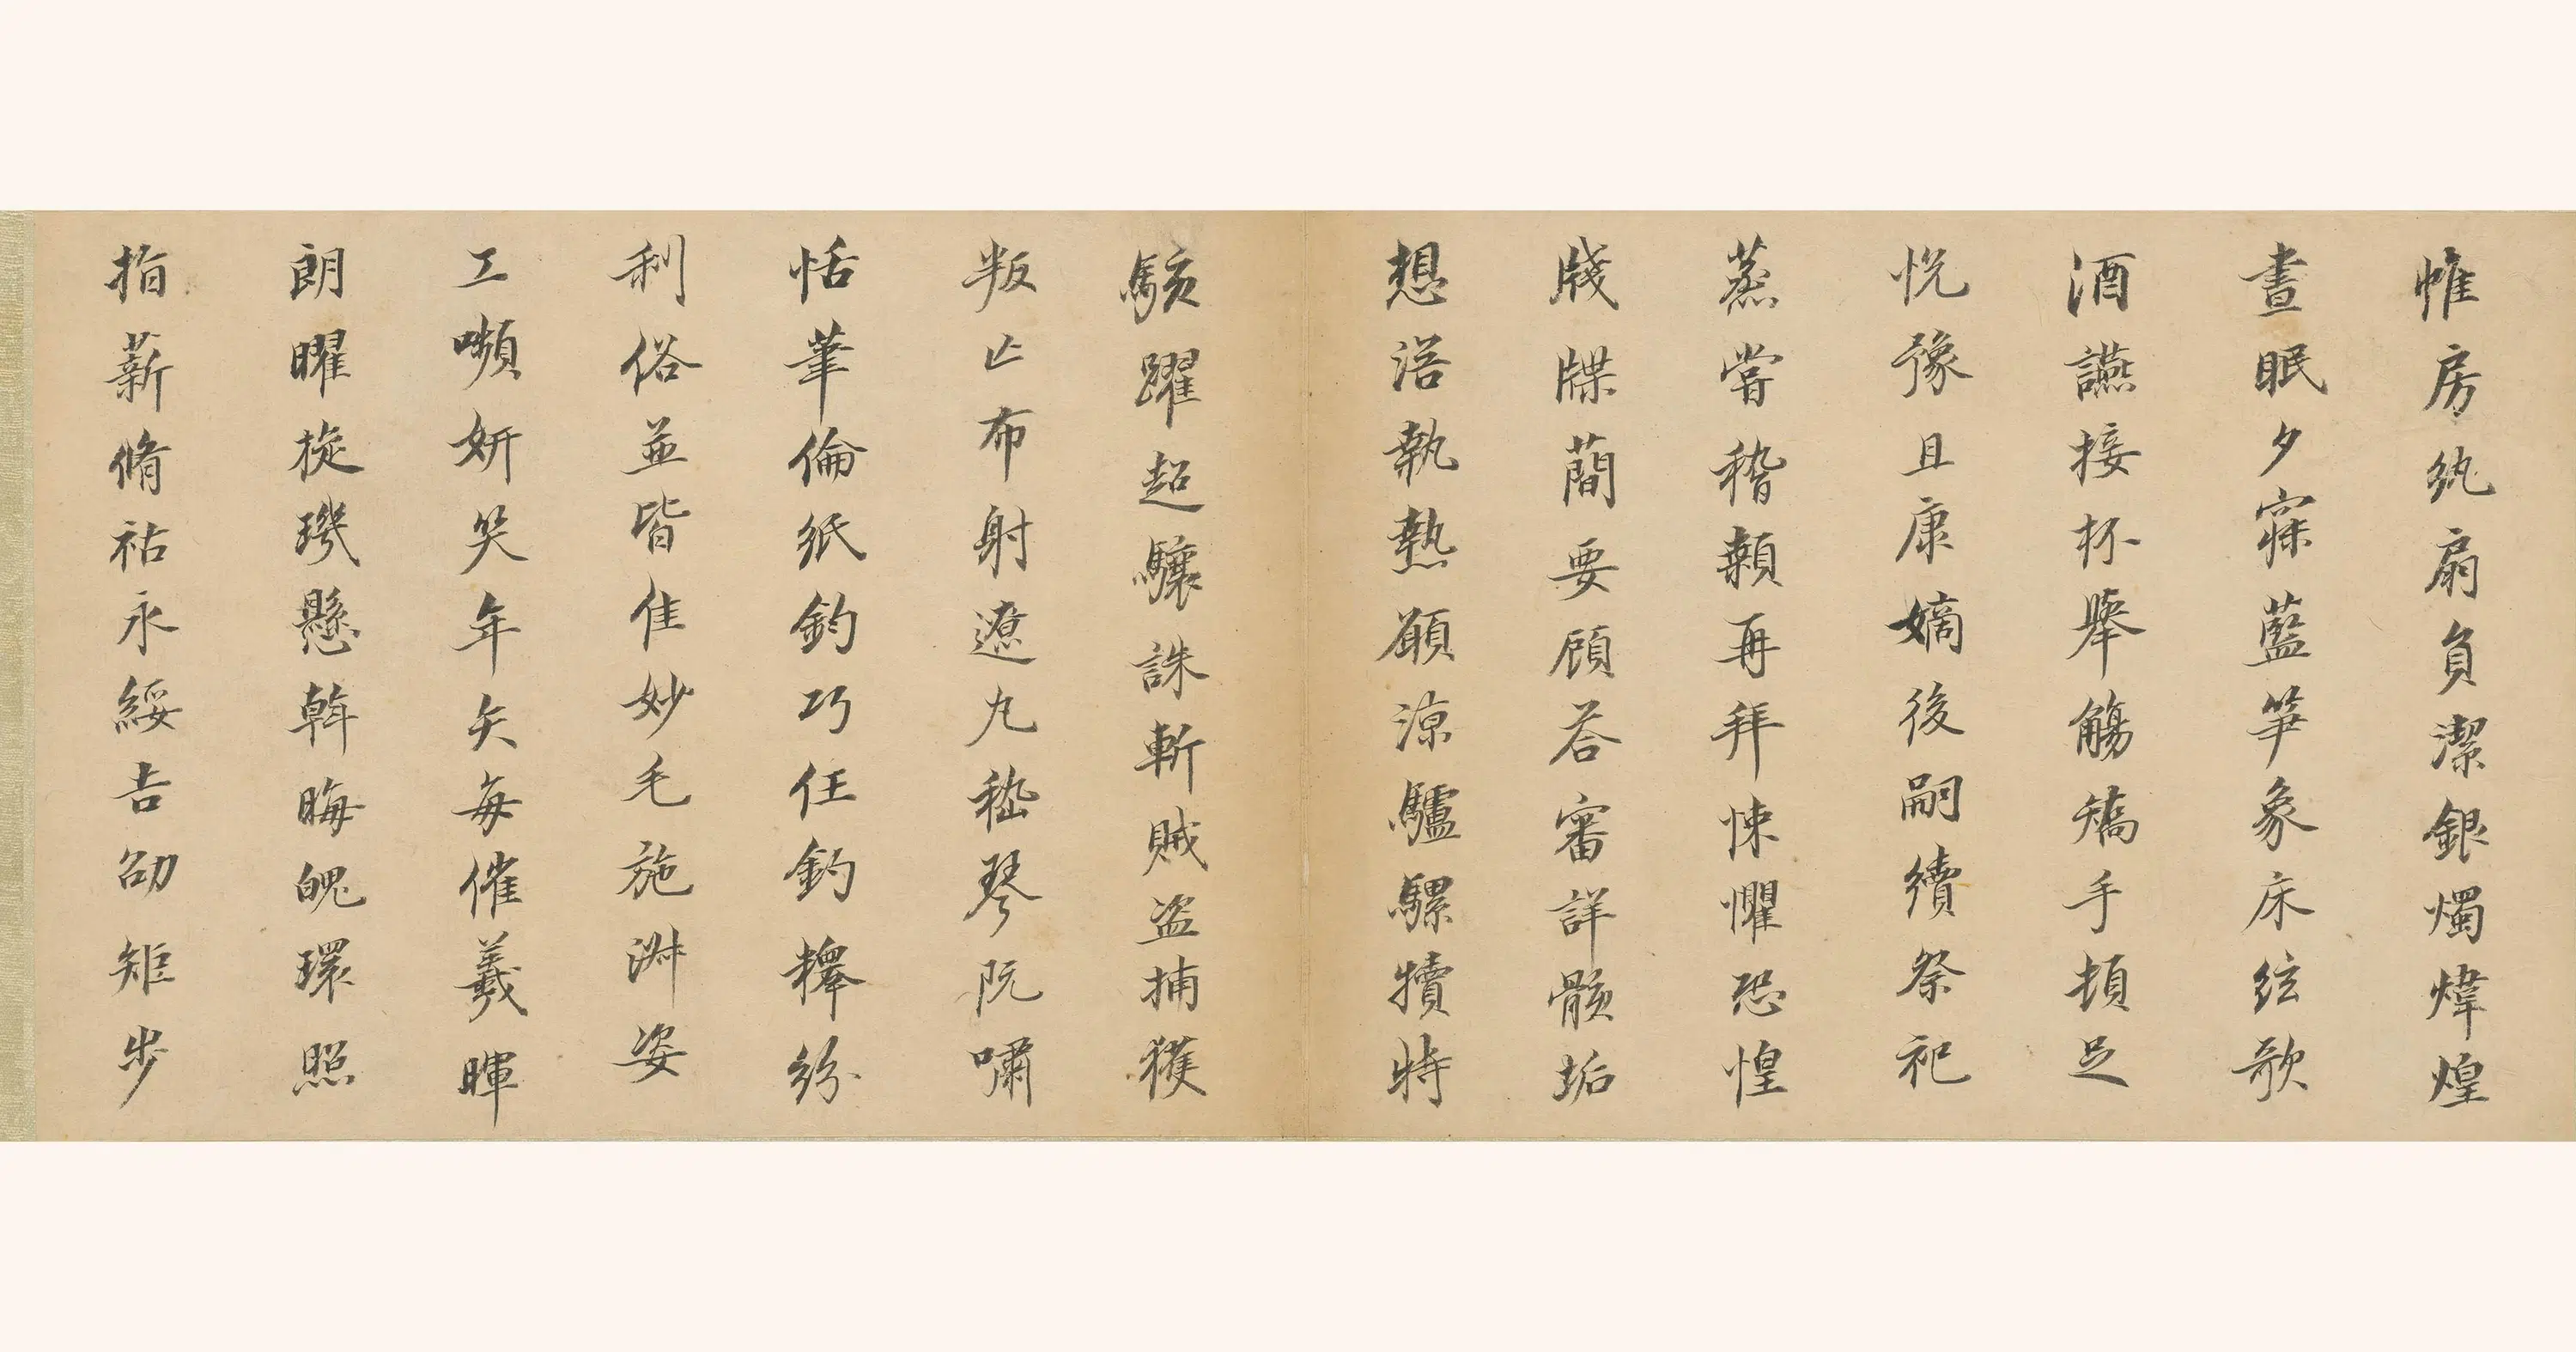 帷房紈扇員潔銀燭煒煌
晝眠夕寐藍笋象床絃歌
酒讌接杯舉觴矯手頓足
悅豫且康嫡後嗣續祭祀
蒸嘗稽顙再拜悚懼恐惶
牋牒簡要顧荅審詳骸垢
想浴執熱願涼驢騾犢特
駭躍超驤誅斬賊盜捕獲
叛亡布射遼丸嵇琴阮嘯
恬筆倫紙鈞巧任釣釋紛
利俗並皆佳妙毛施淑姿
工嚬妍笑年矢每催羲暉
朗曜旋璣懸斡晦魄環照
指薪脩祜永綏吉劭矩步